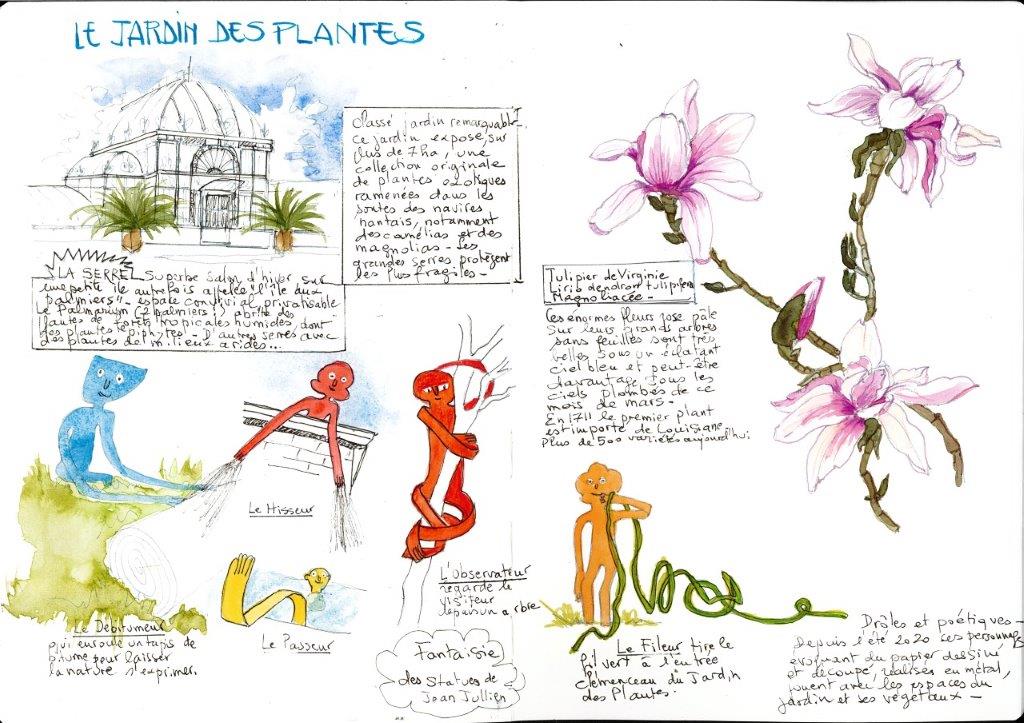 LE JARDIN DES PLANTES
Classé jardin remarquable
ce jardin expose, sur
plus de 7ha, une
collection originale
de plantes exotiques
ramenées dans les
soutes des navires
nantais, notamment
des camélias et des
magnolias - Les
grandes serres protègent
les plus fragiles -
LA SERRE Superbe salon d'hiver sur
une petite île autrefois appelée "l'île aux
palmiers" - espace convivial privatisable
Le Palmarium (2 palmiers !) abrite des
plantes de forêts tropicales humides dont
des plantes épiphytes - D'autres serres avec
des plantes de milieux arides...
Tulipier de Virginie
Liriodendron tulipifera
Magnoliacée -
Les énormes fleurs rose pâle
sur leurs grands arbres
sans feuilles sont très
belles sous un éclatant
ciel bleu et peut-être
davantage sous les
ciels plombés de ce
mois de mars -
En 1711 le premier plant
est importé de Louisiane
Plus de 500 variétés aujourd'hui
Le Hisseur
Le Débitumeur
qui enroule un tapis de
bitume pour laisser
la nature s'exprimer.
Le Passeur
L'Observateur
regarde le
visiteur
depuis un arbre
Fantaisie
des Statues de
Jean Jullien
Le Fileur tire le
fil vert à l'entrée
Clémenceau du Jardin
des Plantes.
Drôles et poétiques -
Depuis l'été 2020 ces personnages
évoquant du papier dessiné
et découpé, réalisés en métal,
jouent avec les espaces du
jardin et ses végétaux -